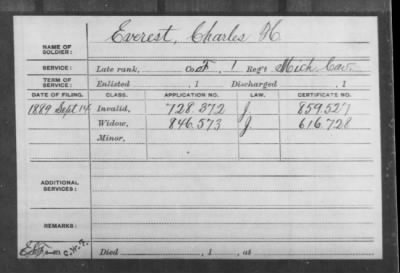 Everest, Charles H
NAME OF SOLDIER:
SERVICE: Late rank, Co. F, 1 Reg't Mich Cav.
TERM OF SERVICE: Enlisted , 1 Discharged , 1
DATE OF FILING. CLASS. APPLICATION NO. LAW. CERTIFICATE NO.
1889 Sept 14 Invalid, 728 372 J. 859.527
Widow, 846.573 J 616.728
Minor,
ADDITIONAL SERVICES:
REMARKS:
Died , 1 , at